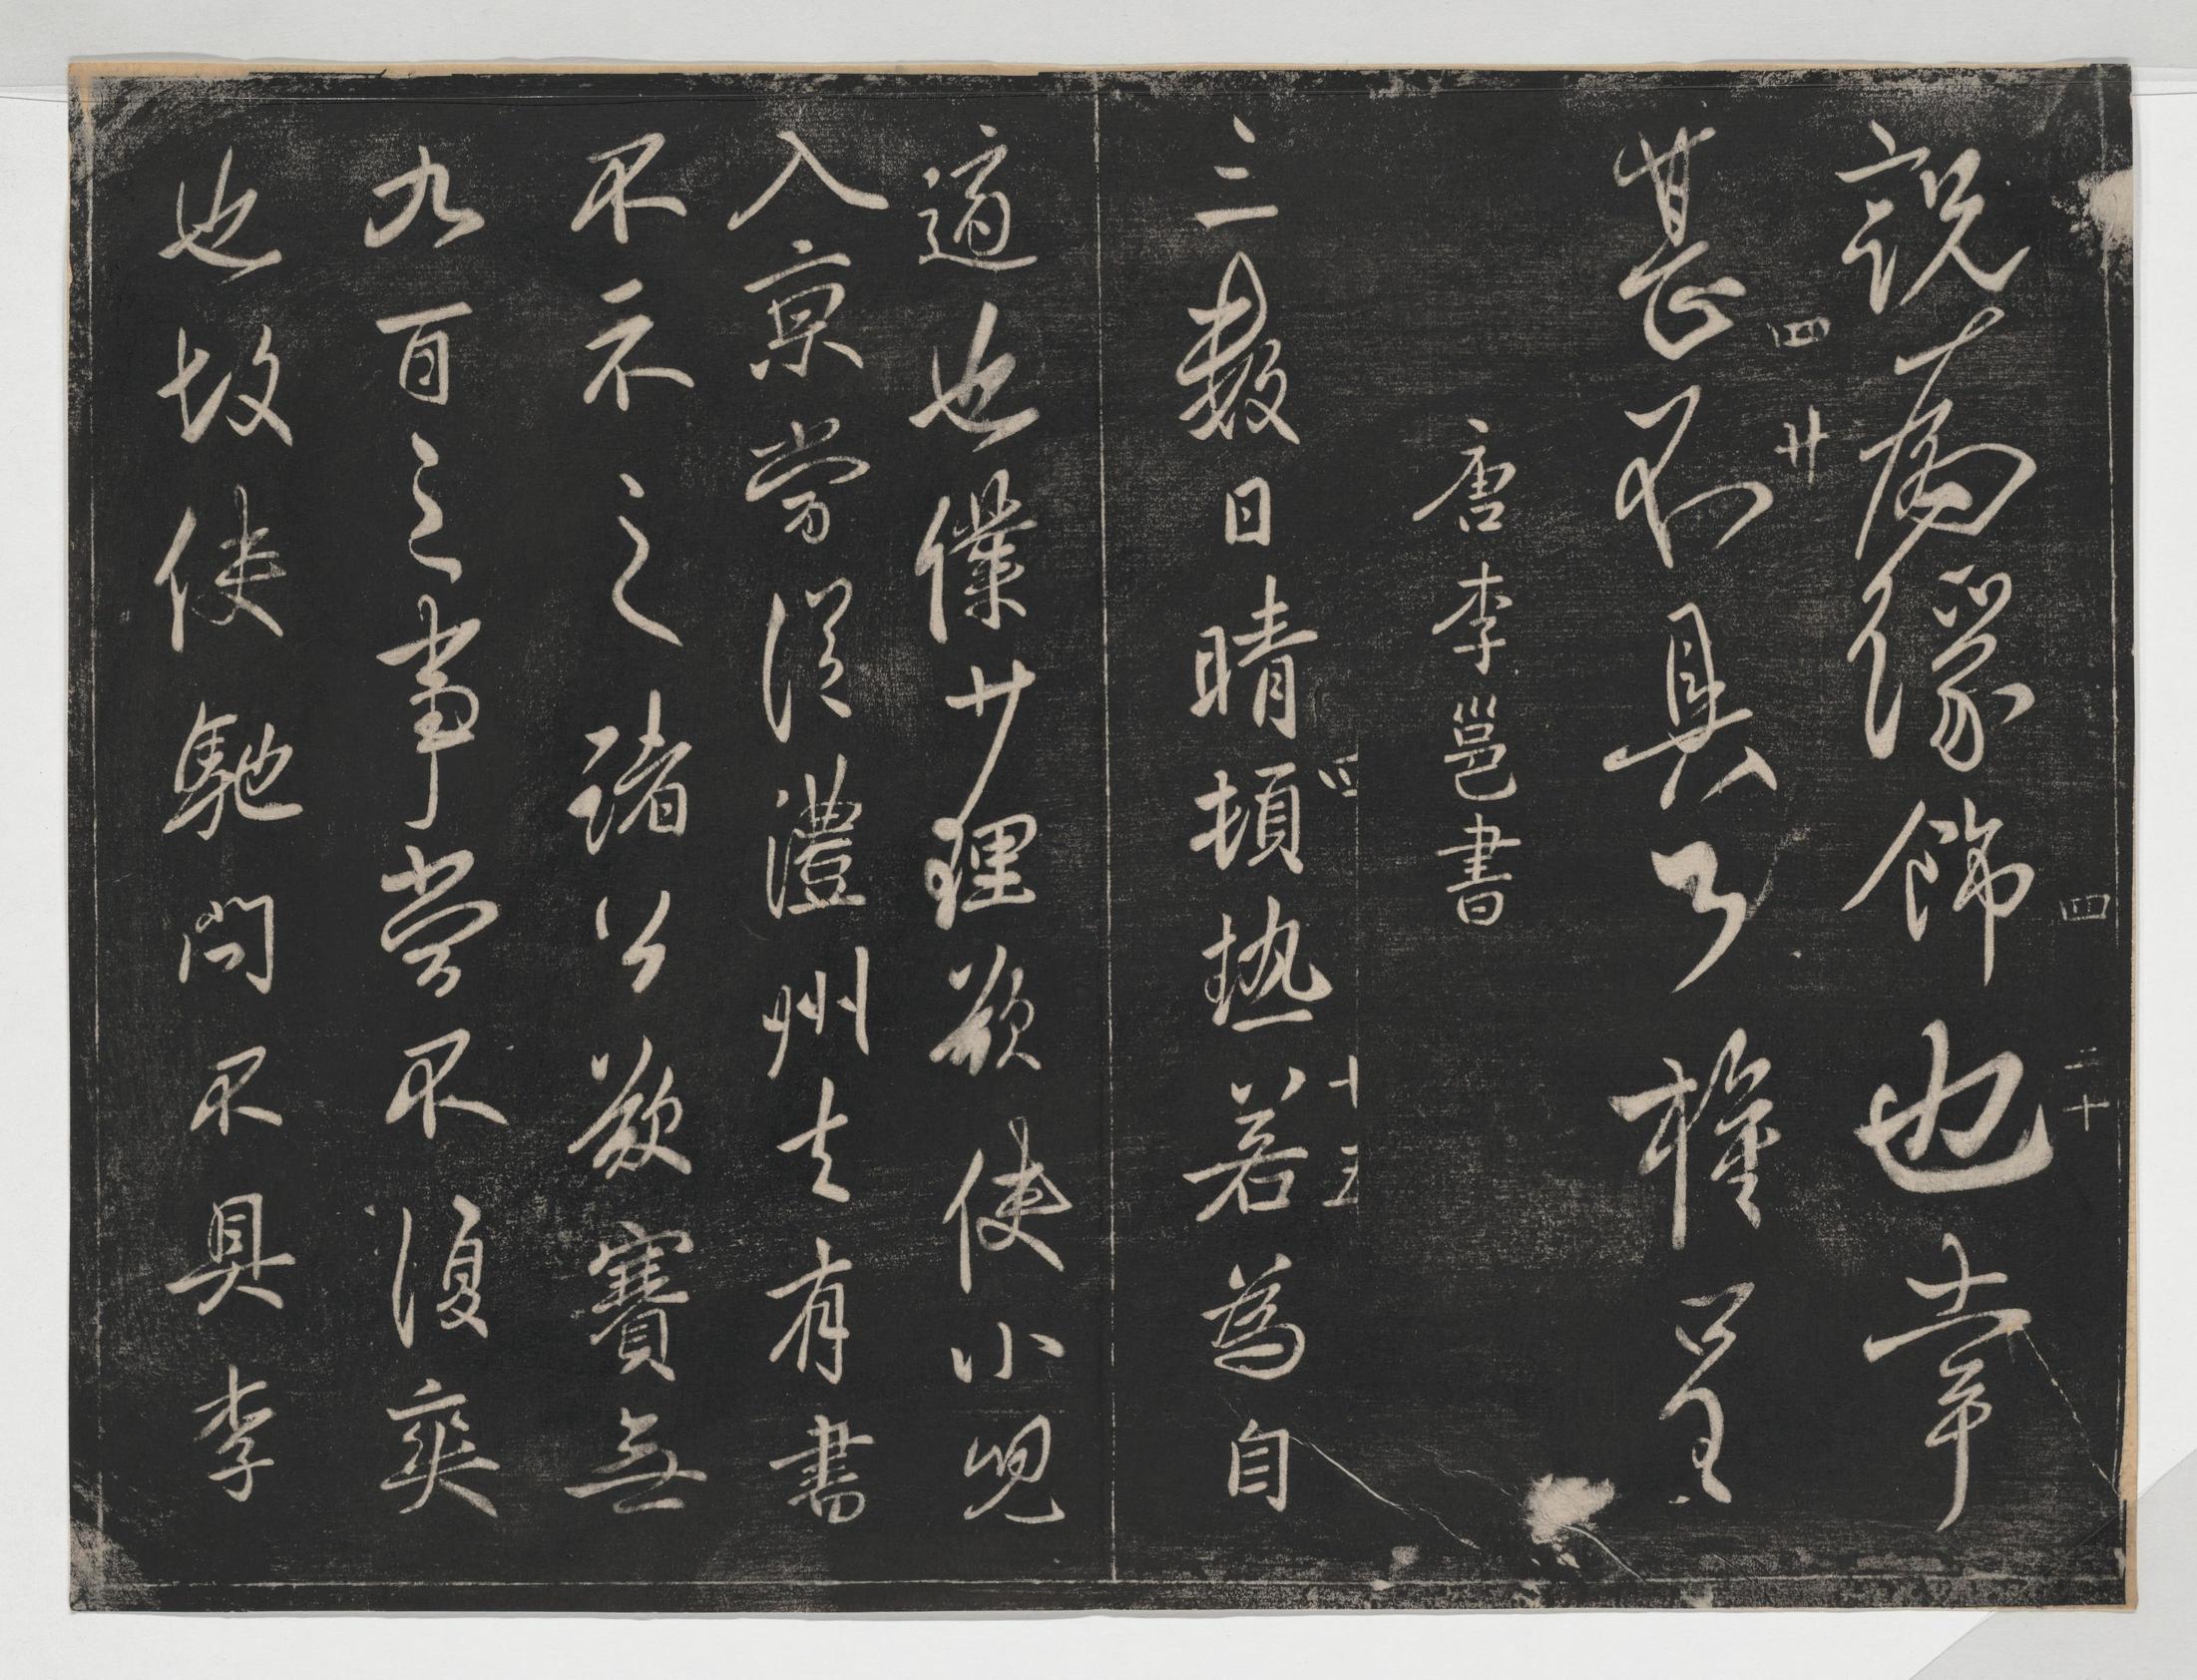 四 二十
説為緣飾也幸
四 廿
甚不具公權呈
唐李邕書
三數日晴頓熱若為自
適也僕廿理欲使小兒
入京當從澧州去有書
不示之諸公欲賽無
九百之事當不復爽
也故使馳問不具李